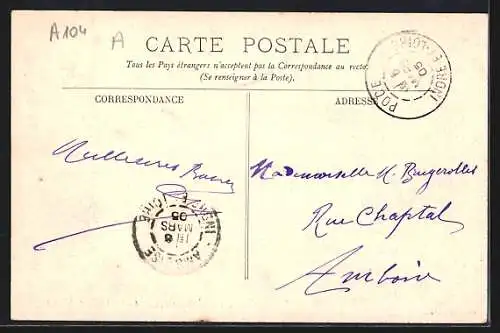 A104
A
CARTE POSTALE
Tous les Pays étrangers n'acceptent pas la Correspondance au recto
(Se renseigner à la Poste).
CORRESPONDANCE
ADRESSE
Meilleures
Mademoiselle M. Brugerolles
Rue Chaptal
Amboise
POCÉ
6
MARS
05
6
MARS
05